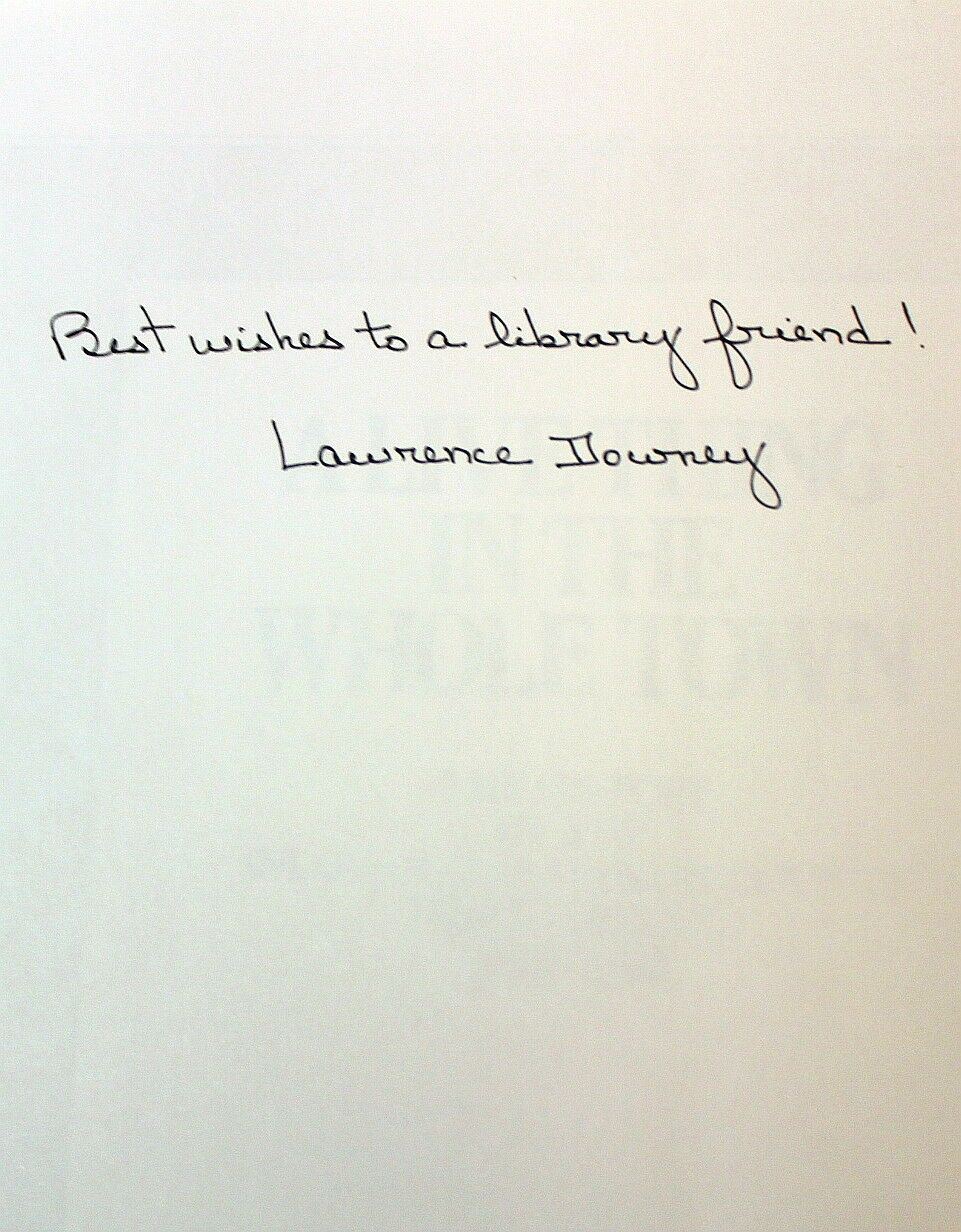 Best wishes to a library friend!
Lawrence Downey